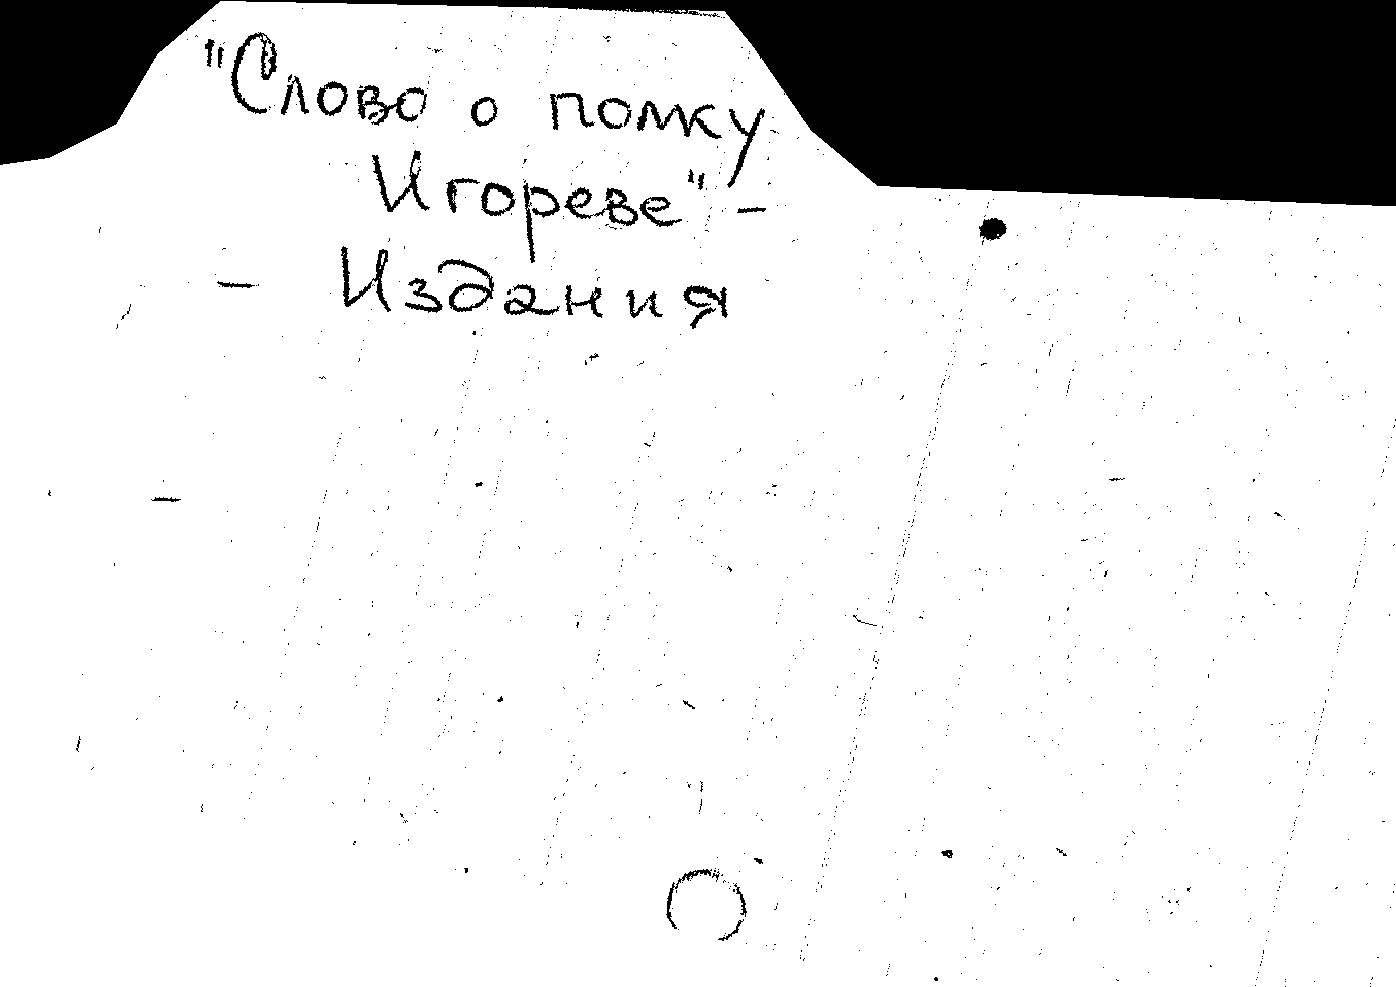 "Слово о полку
Игореве" -
- Издания